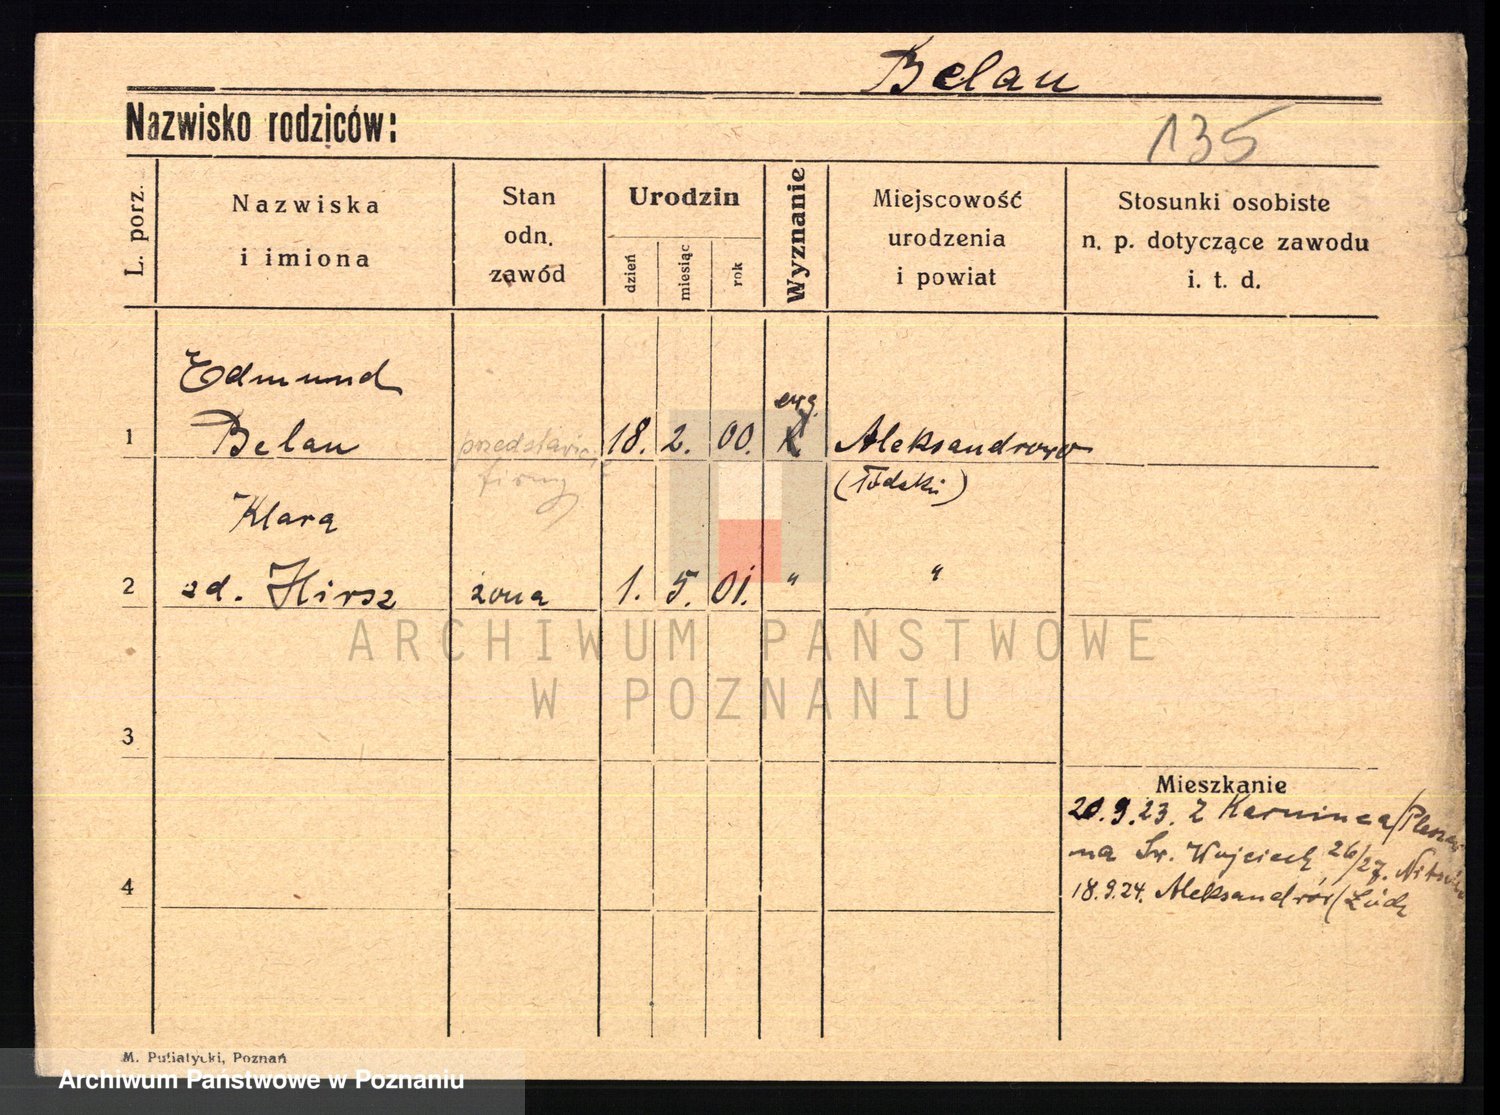 Belau
Nazwisko rodziców:
135
L. porz.
Nazwiska
i imiona
Stan
odn.
zawód
Urodzin
dzień
miesiąc
rok
Wyznanie
Miejscowość
urodzenia
i powiat
Stosunki osobiste
n. p. dotyczące zawodu
i. t. d.
Edmund
1 Belau 18. 2. 00. ewg. Aleksandrowo
firmy (Łódzki)
Klara
2 zd. Hirsz żona 1. 5. 01. " "
ARCHIWUM PAŃSTWOWE
W POZNANIU
3
Mieszkanie
20.9.23. z
na Św. Wojciech 26/27.
4
18.9.24. Aleksandrów/Łódź
M. Putiatycki, Poznań
Archiwum Państwowe w Poznaniu